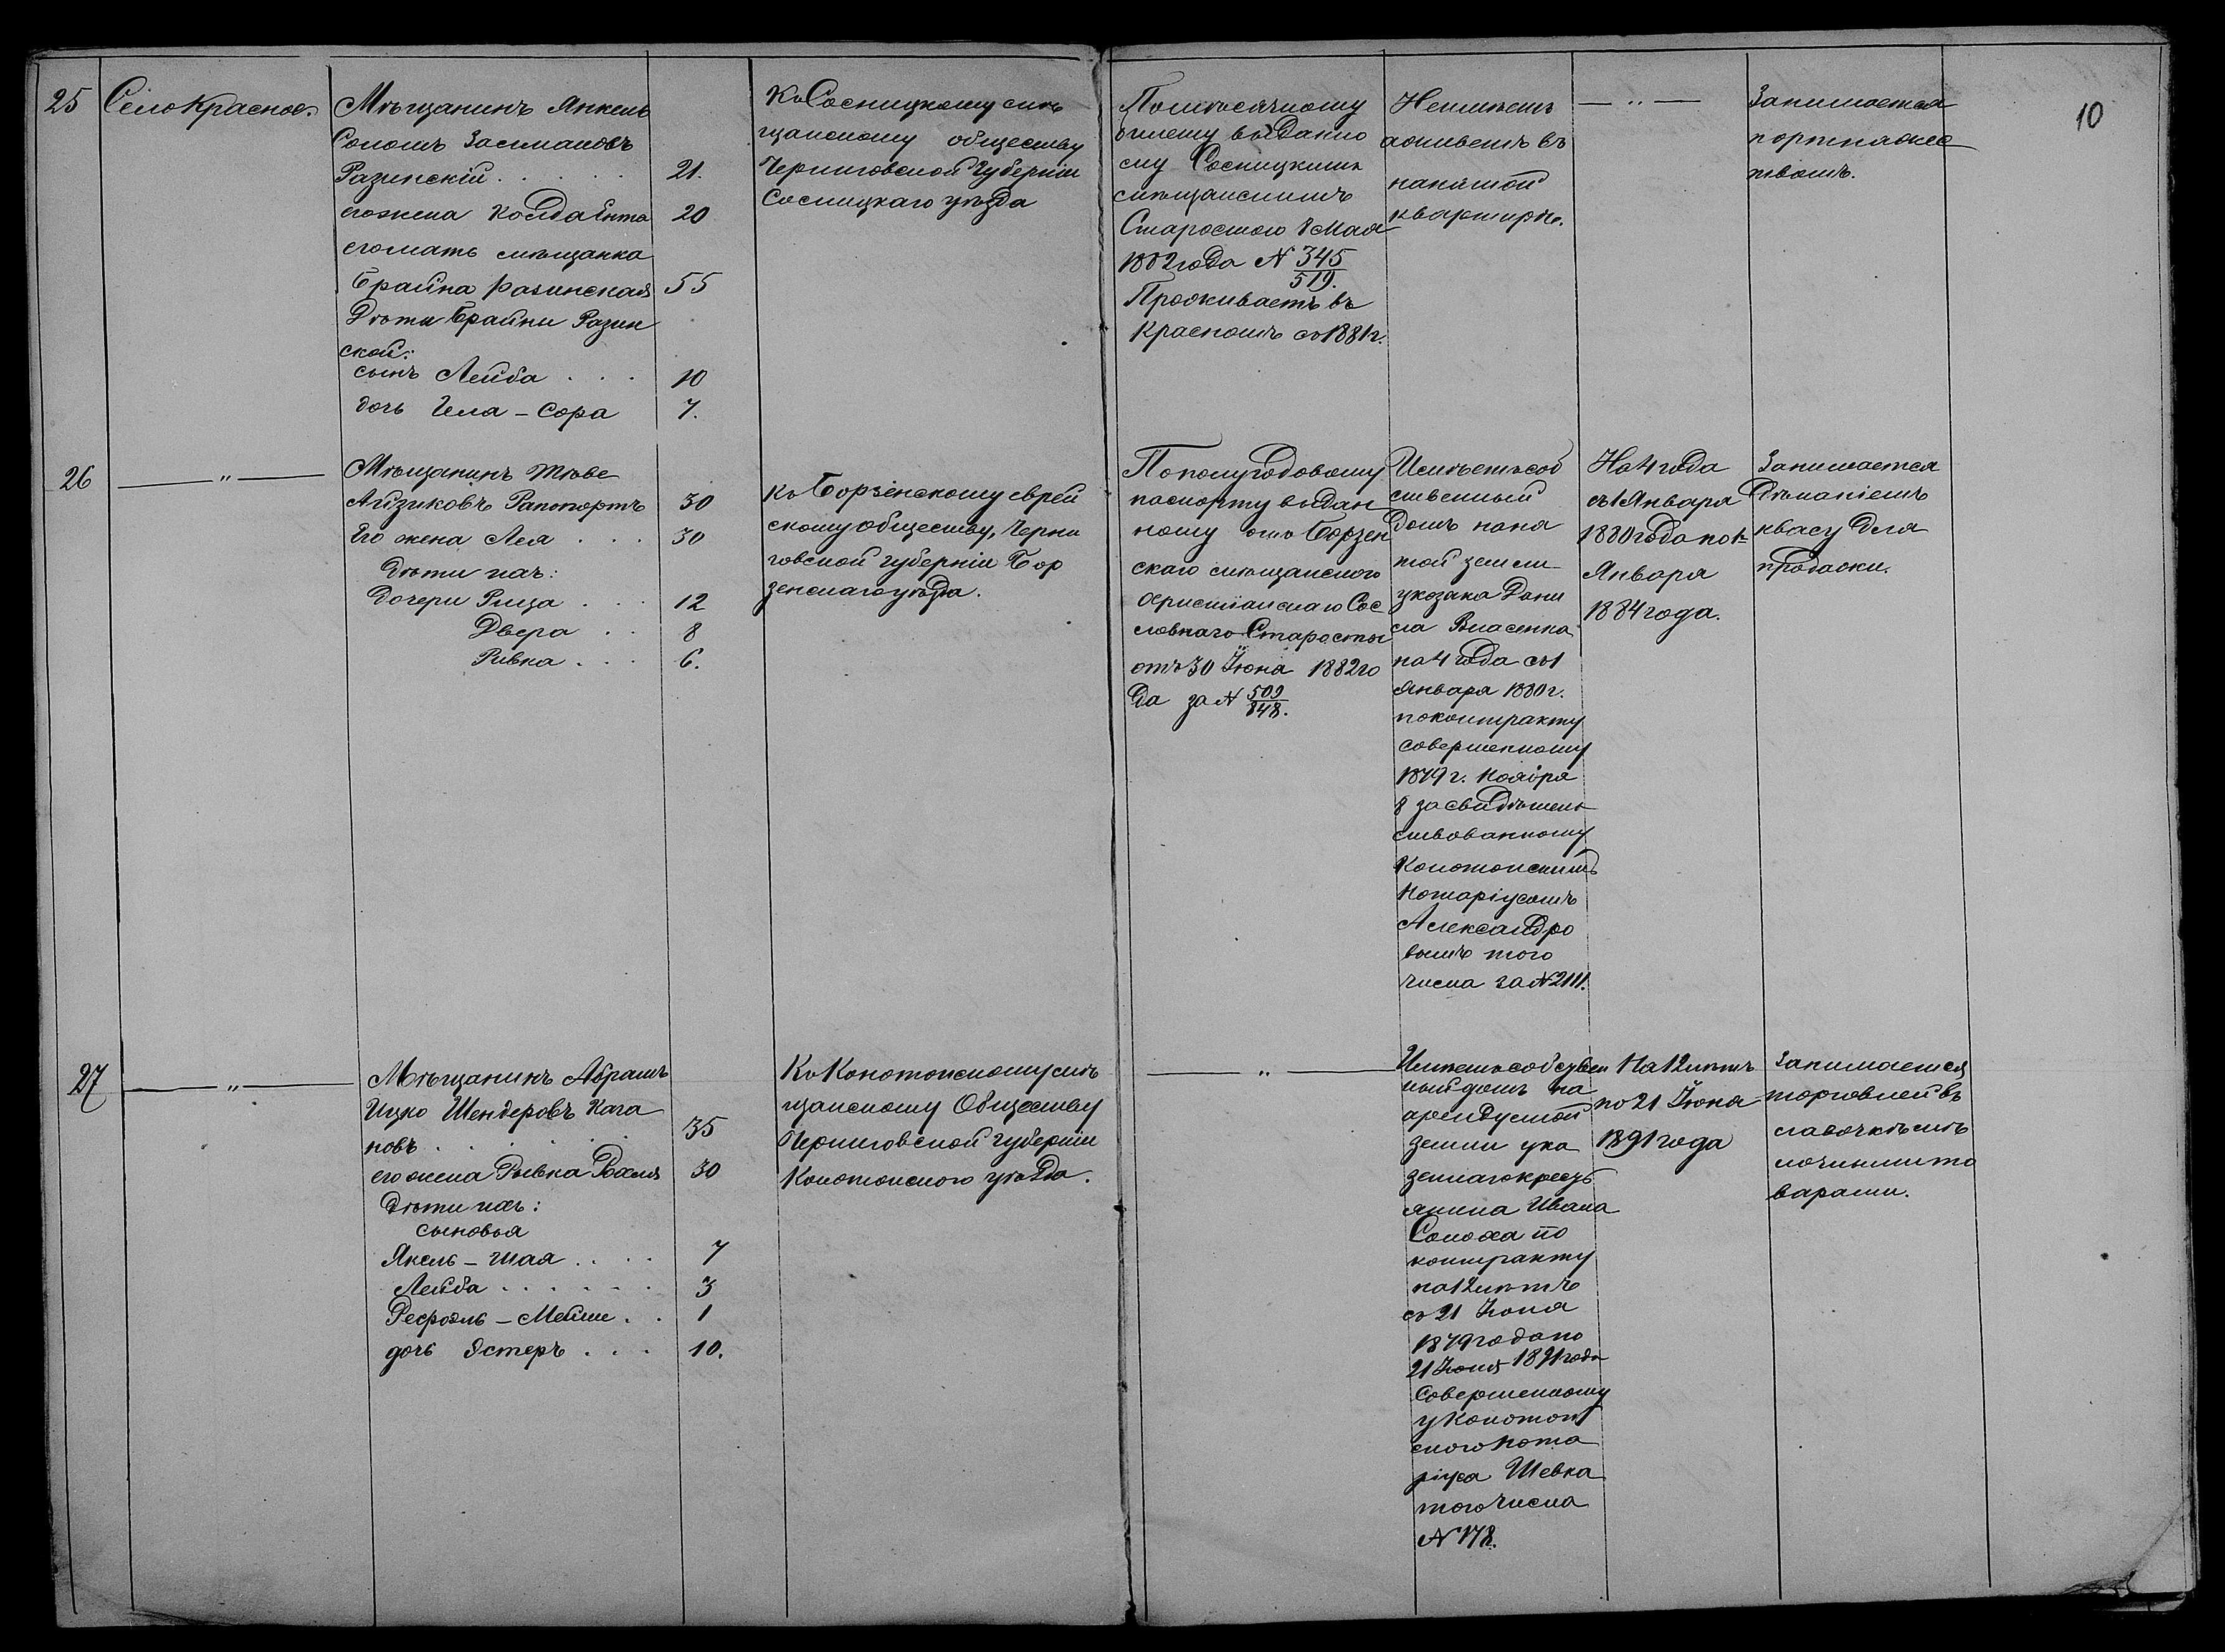 10
25
Село Красное.
Мѣщанинъ Янкель
Соломъ Залмановъ
Разинскій . . . . . 21.
его жена Колда Ента 20
его мать мѣщанка
Брайна Разинская 55
Дѣти Брайни Разин
ской:
сынъ Лейба . . . 10
дочь Гела - Сора 7.
Къ Сосницкому мѣ
щанскому обществу
Черниговской Губерніи
Сосницкаго уѣзда
билету выданно
му Сосницкимъ
мѣщанскимъ
Старостою 8 Мая
1882 года N 345/519.
Проживаетъ въ
Красномъ съ 1881 г.
Неимѣетъ
а живетъ въ
нанятой
квартирѣ.
— " —
Занимается
портняжес
твомъ.
26
— " —
Мѣщанинъ Тѣве
Айзиковъ Рапопортъ 30
Его жена Лея . . . 30
Дѣти ихъ:
Дочери Рыза . . . 12
Двера . . 8
Ривка . . . 6.
Къ Борзенскому еврей
скому обществу, Черни
говской губерніи Бор
зенскаго уѣзда.
По полугодовому
паспорту выдан
ному отъ Борзен
скаго мѣщанского
христіанскаго Сос
ловнаго Старосты
отъ 30 Іюня 1882 го
да за N 509/848.
Имѣетъ соб
ственный
домъ нана
той земли
у козака Дани
ла Власенка
на 4 года съ 1
Января 1880 г.
по контракту
совершенному
1879 г. Ноября
8 засвидѣтель
ствованному
Конотопскимъ
Нотаріусомъ
Александро
вымъ того
числа за N 2111.
На 4 года
съ 1 Января
1880 года по 1е
Января
1884 года.
Занимается
Дѣланіемъ
квасу для
продажи.
27
— " —
Мѣщанинъ Абрамъ
Ицко Шендеровъ Кага
новъ . . . . . . 35
его жена Рывка Рохля 30
Дѣти ихъ:
сыновья
Янкель - Шая . . . . 7
Лейба . . . . . . 3
Рефоэль - Мейше . . 1
дочь Эстеръ . . . 10.
Къ Конотопскому мѣ
щанскому Обществу
Черниговской губерніи
Конотопского уѣзда.
— " —
Имѣетъ собствен
ный домъ на
арендуемой
земли у ка
зеннаго кресть
янина Ивана
Солоха по
контракту
на 12 лѣтъ
съ 21 Іюня
1879 года по
21 Іюня 1891 года
Совершенному
у Конотоп
ского Нота
ріуса Шевка
того числа
N 178.
На 12 лѣтъ
по 21 Іюня
1891 года
Занимается
торговлей въ
лавочкѣ мѣ
лочными то
варами.